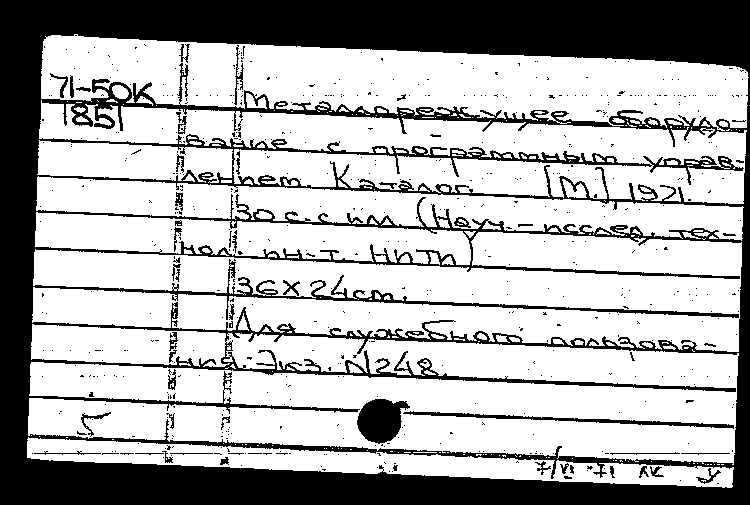 71-50K
1851
Металлорежущее оборудо-
вание с программным управ-
лением. Каталог. [М.], 1971.
30 с. с илл. (Науч.-исслед. тех-
нол. ин-т. НИТИ)
36X24см.
Для служебного пользова-
ния. Экз. N248.
5
7/VI -71 ЛК У